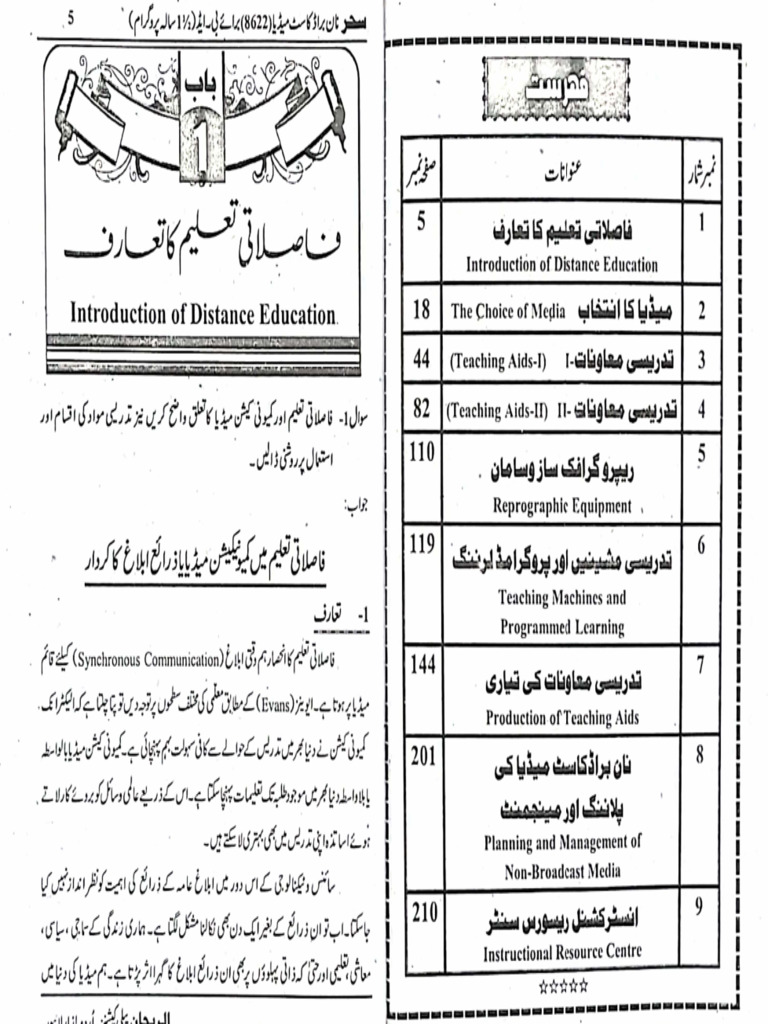 فہرست
نمبر شمار عنوانات صفحہ نمبر
1 فاصلاتی تعلیم کا تعارف 5
Introduction of Distance Education
2 میڈیا کا انتخاب The Choice of Media 18
3 تدریسی معاونات-I (Teaching Aids-I) 44
4 تدریسی معاونات-II (Teaching Aids-II) 82
5 ریپروگرافک سازوسامان 110
Reprographic Equipment
6 تدریسی مشینیں اور پروگرامڈ لرننگ 119
Teaching Machines and
Programmed Learning
7 تدریسی معاونات کی تیاری 144
Production of Teaching Aids
8 نان براڈکاسٹ میڈیا کی 201
پلاننگ اور مینجمنٹ
Planning and Management of
Non-Broadcast Media
9 انسٹرکشنل ریسورس سنٹر 210
Instructional Resource Centre
☆☆☆☆☆
سحر نان براڈ کاسٹ میڈیا (8622) برائے بی۔ایڈ (1½ سالہ پروگرام) 5
باب
1
فاصلاتی تعلیم کا تعارف
Introduction of Distance Education
سوال1- فاصلاتی تعلیم اور کمیونی کیشن میڈیا کا تعلق واضح کریں نیز تدریسی مواد کی اقسام اور
استعمال پر روشنی ڈالیں۔
جواب:
فاصلاتی تعلیم میں کمیونیکیشن میڈیا یا ذرائع ابلاغ کا کردار
1- تعارف
فاصلاتی تعلیم کا انحصار ہم وقتی ابلاغ (Synchronous Communication) کیلئے قائم
میڈیا پر ہوتا ہے۔ ایوینز (Evans) کے مطابق معلمی کی مختلف سطحوں پر توجہ دیں تو پتا چلتا ہے کہ الیکٹرانک
کمیونی کیشن نے دنیا بھر میں تدریس کے حوالے سے کافی سہولت بہم پہنچائی ہے۔ کمیونی کیشن میڈیا بالواسطہ
یا بلاواسطہ دنیا بھر میں موجود طلبہ تک تعلیمات پہنچا سکتا ہے۔ اس کے ذریعے عالمی وسائل کو بروئے کار لاتے
ہوئے اساتذہ اپنی تدریس میں بھی بہتری لا سکتے ہیں۔
سائنس و ٹیکنالوجی کے اس دور میں ابلاغ عامہ کے ذرائع کی اہمیت کو نظر انداز نہیں کیا
جا سکتا۔ اب تو ان ذرائع کے بغیر ایک دن بھی نکالنا مشکل لگتا ہے۔ ہماری زندگی کے سماجی، سیاسی،
معاشی، تعلیمی اور حتیٰ کہ ذاتی پہلوؤں پر بھی ان ذرائع ابلاغ کا گہرا اثر پڑتا ہے۔ ہم میڈیا کی دنیا میں